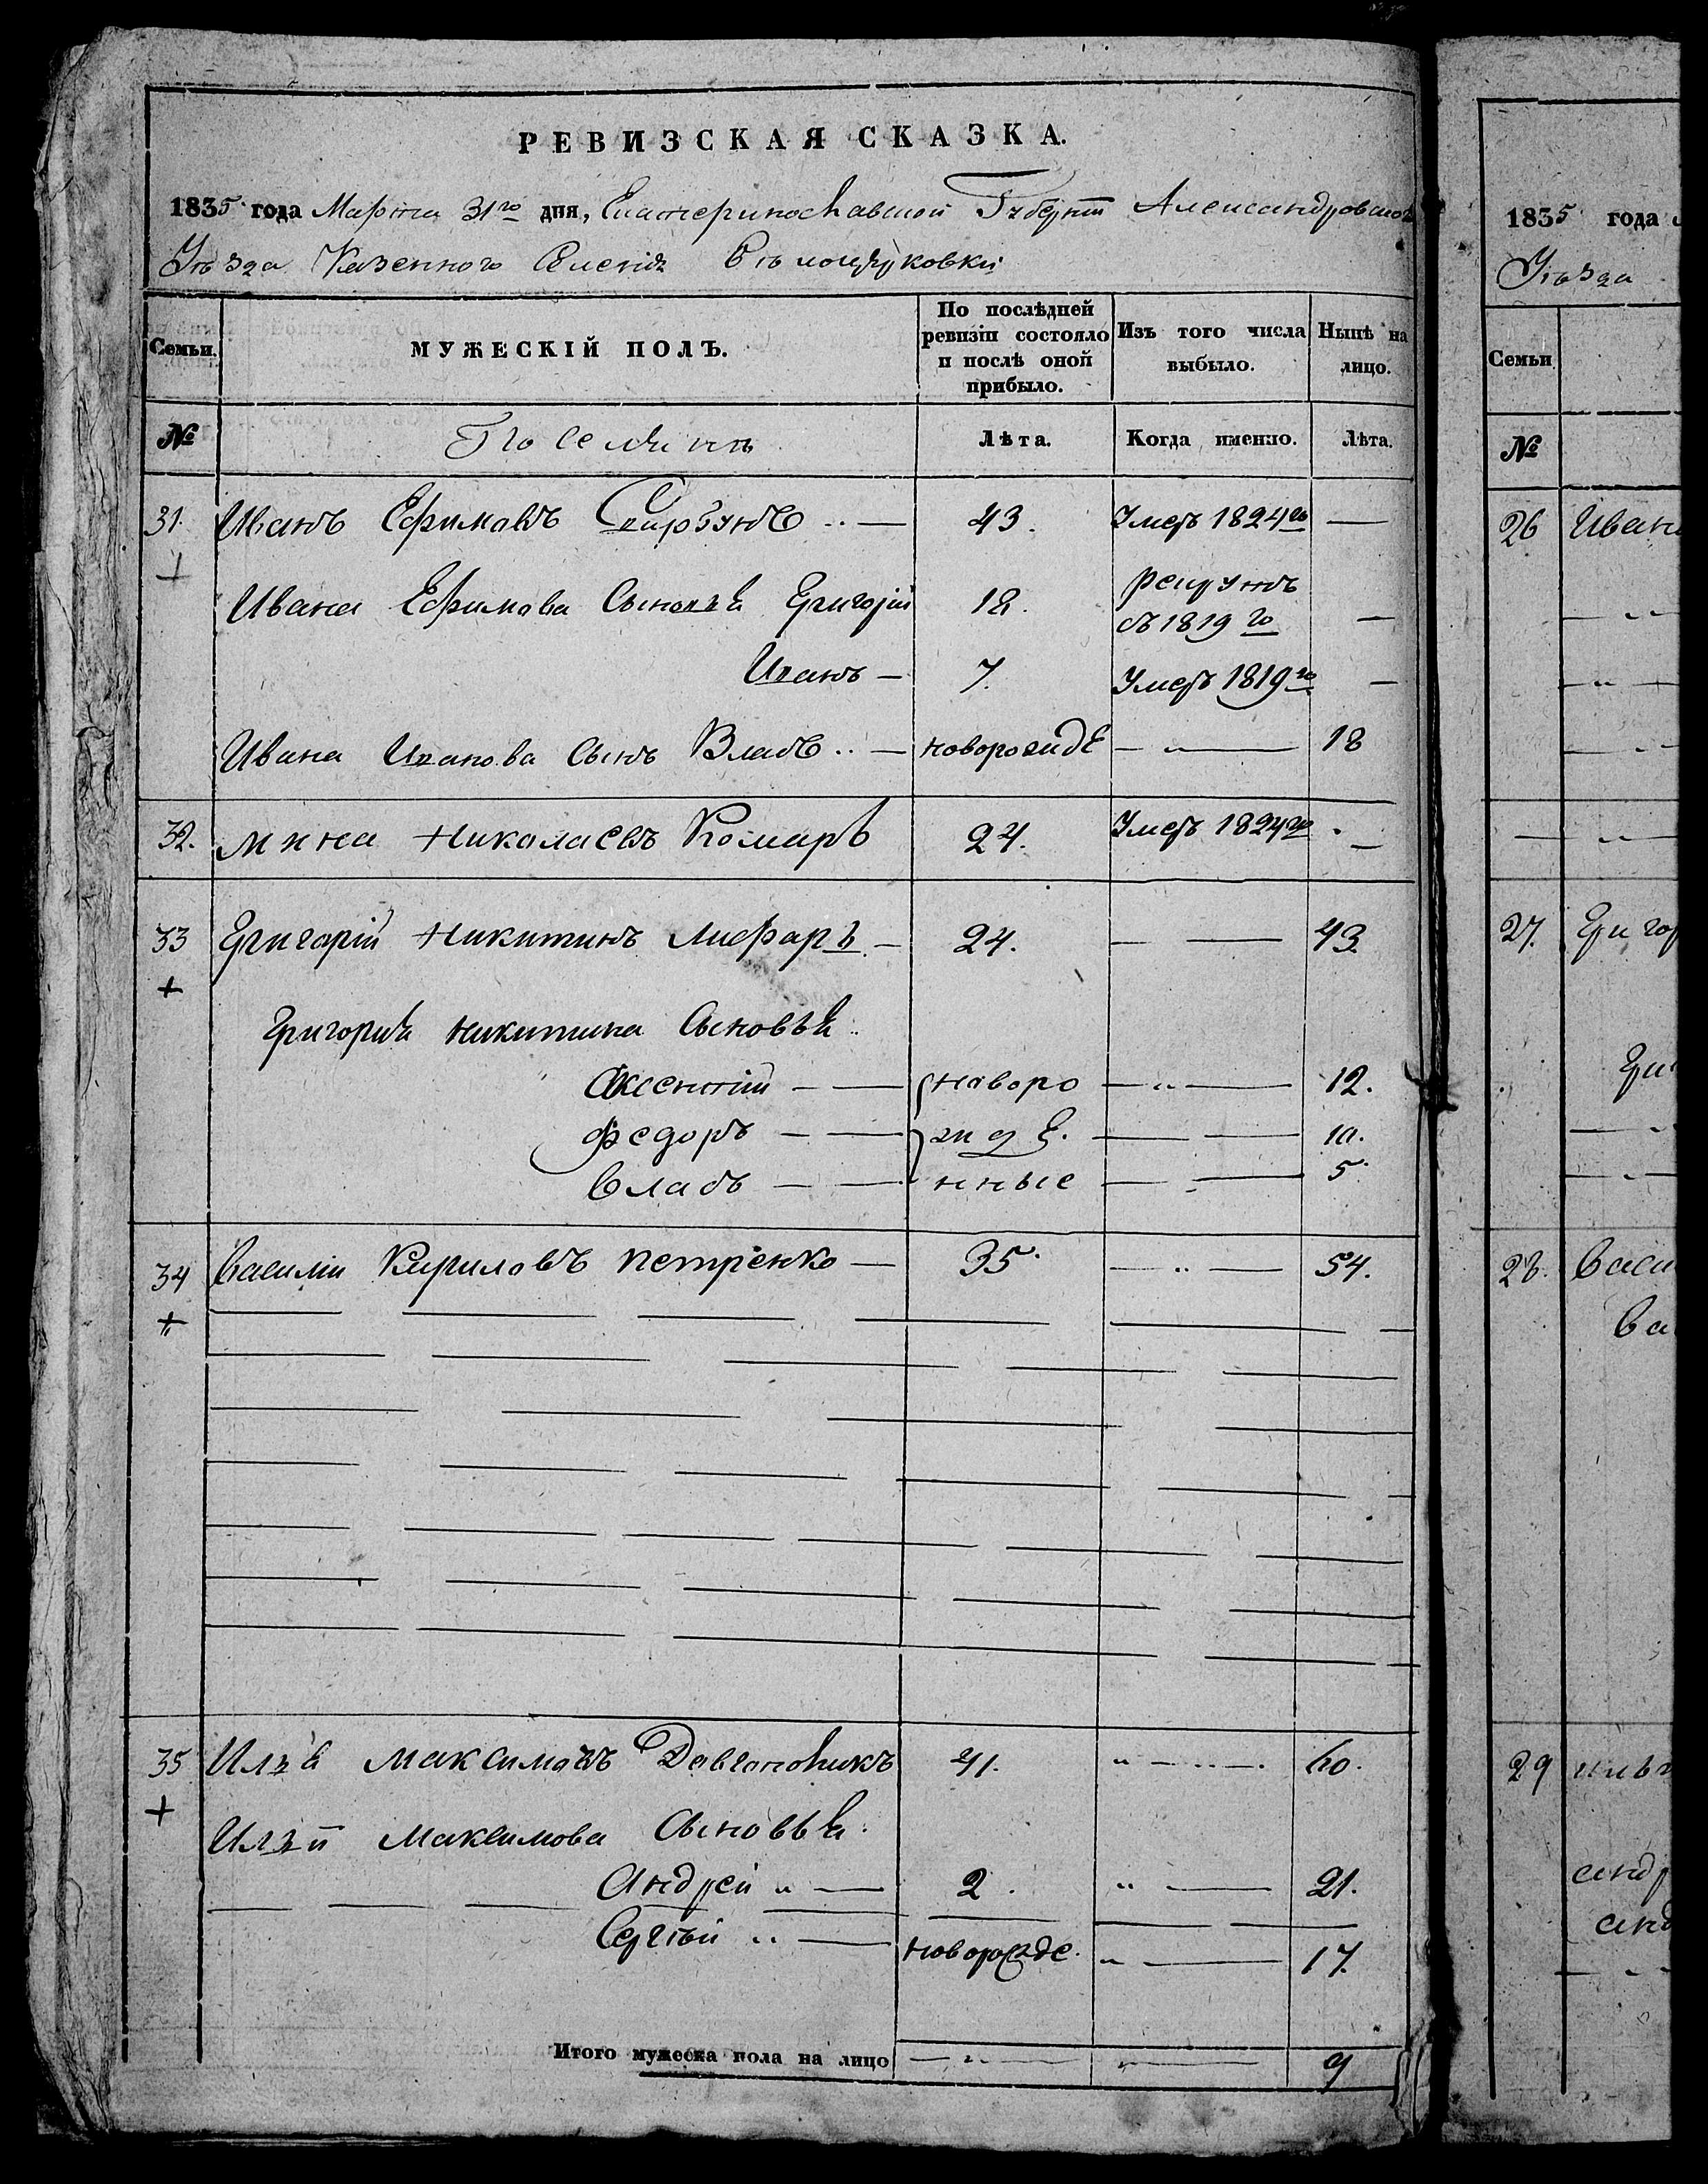 РЕВИЗСКАЯ СКАЗКА.
1835 года Марта 31го дня, Екатеринославской Губерніи Александровскаго
Уѣзда Казенного Селенія
Семьи.
МУЖЕСКІЙ ПОЛЪ.
По послѣдней ревизіи состояло и послѣ оной прибыло.
Изъ того числа выбыло.
Нынѣ на лицо.
№
Поселянъ
Лѣта.
Когда именно.
Лѣта.
31. Иванъ Ефимовъ 43. Умеръ 1824го —
Ивана Ефимова Сыновья Григорій 18. рекрутъ
съ 1819го —
Иванъ — 7. Умеръ 1819го —
Ивана Иванова Сынъ Власъ — новорожде — " — 18
32. Мина Николаевъ Комаръ 24. Умеръ 1824го —
33 Григорій Никитинъ Лифарь — 24. — — 43.
+
Григорія Никитина Сыновья
Аксентій — — новоро — " — 12.
Федоръ — — жде — — 10.
Власъ — — нные — — 5.
34 Василій Кириловъ Петренко — 35. — " — 54.
+
35 Илья Максимовъ 41. " — " — 60.
+
Ильи Максимова Сыновья
Андрей " — 2. " — 21.
Сергѣй " — новорожде. " — 17.
Итого мужеска пола на лицо — " — " — 9
1835 года
Уѣзда
Семьи
№
26 Иван
27. Григор
Гри
28. Васи
Ва
29 Иль
андр
анд